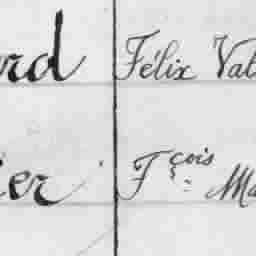 rd Félix Val
ier Fçois Ma